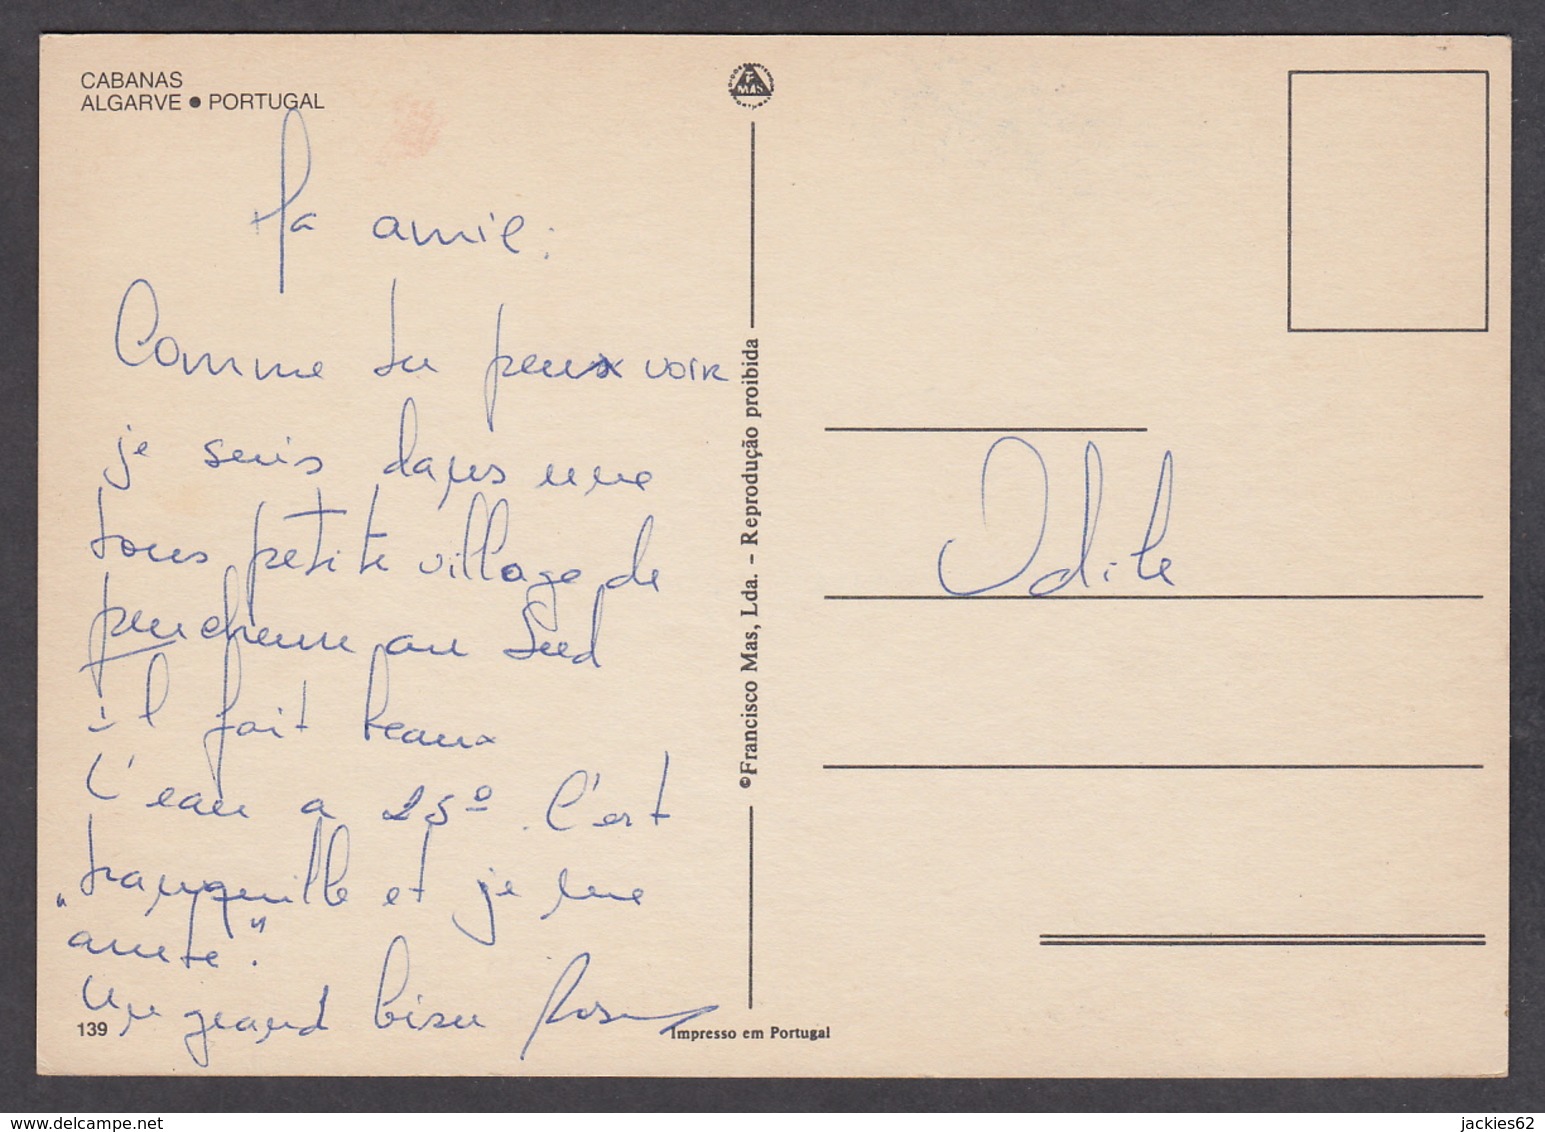 CABANAS
ALGARVE • PORTUGAL
Ma amie:
Comme tu peux voir
je suis dans une
tous petite village de
pecheurs au Sud
il fait beaux
L'eau a 25º. C'est
"tranquille et je me
arrete".
Un grand bisou
139
F. MAS
©Francisco Mas, Lda. - Reprodução proibida
Impresso em Portugal
Odile
delcampe.net
jackies62